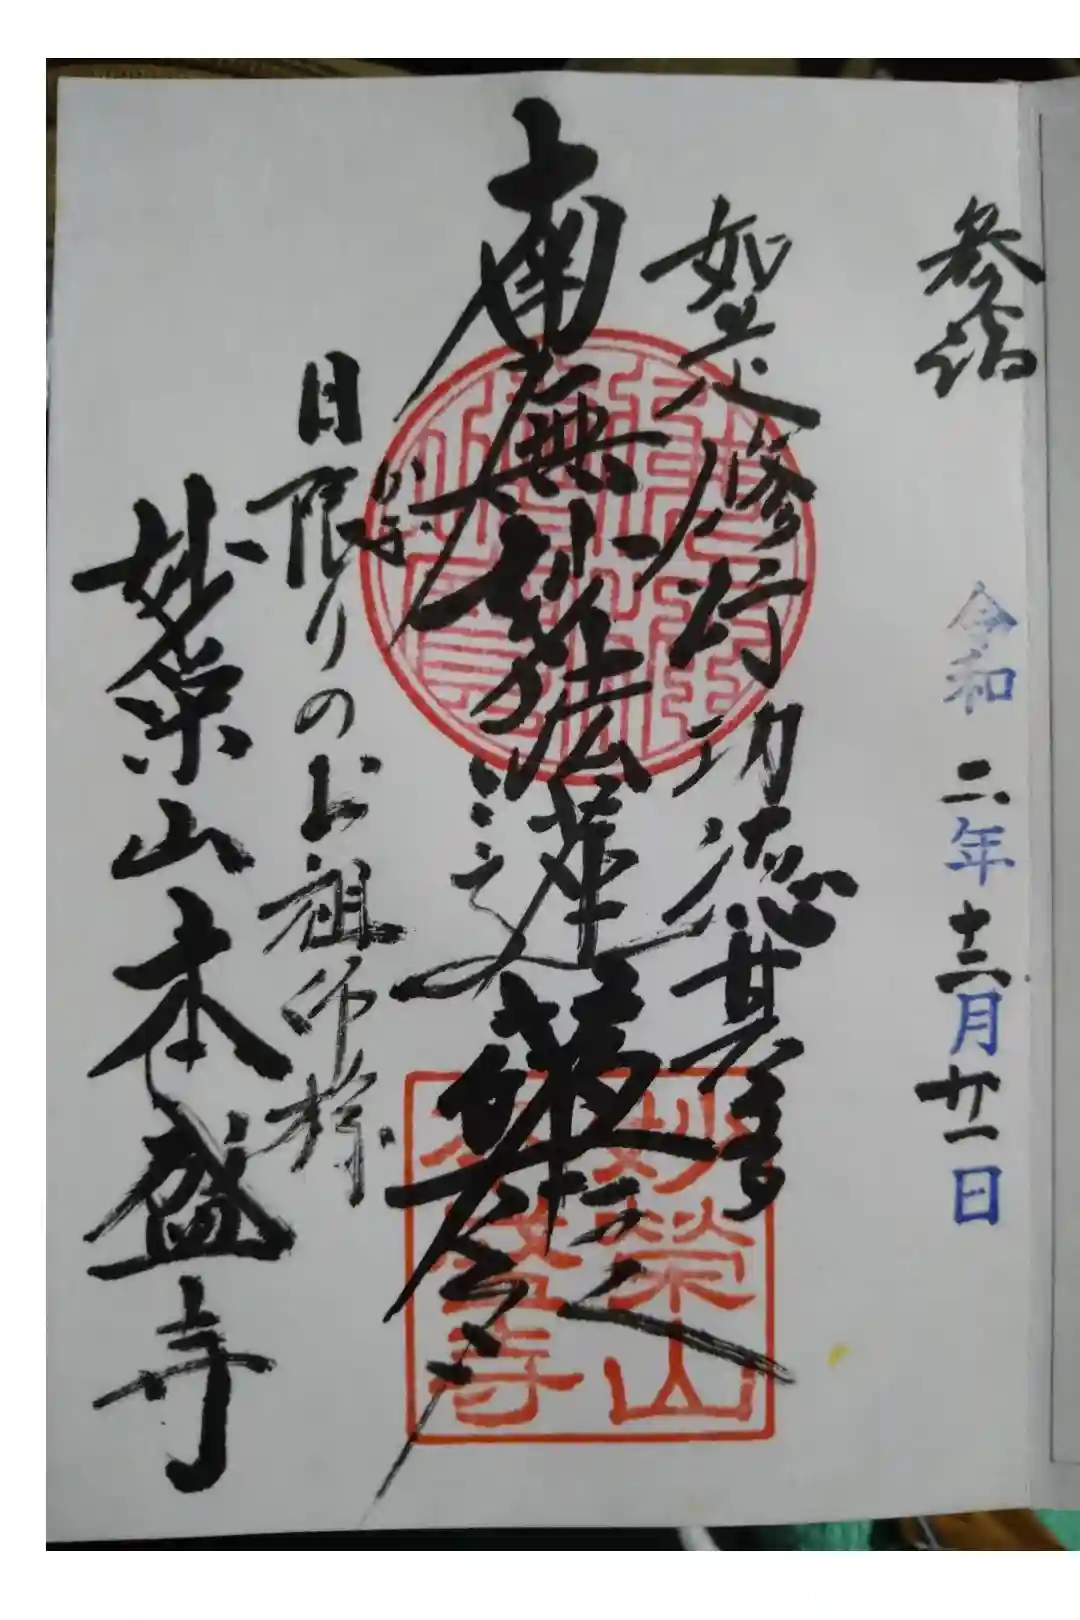 参詣
令和 二年 十二月 廿一日
如是修行功徳甚多
南無妙法蓮華経
日限りのお祖師様
妙栄山本盛寺
妙榮山
本盛寺